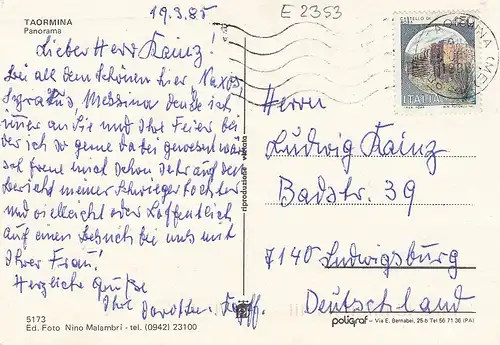 TAORMINA
Panorama
19.3.85
E 2353
Lieber Herr Kainz!
Bei all dem Schönen hier, Naxos,
Syrakus, Messina denke ich
immer an Sie und Ihre Feier bei
der ich so gerne dabei gewesen wäre
freue mich schon sehr auf den
Bericht meiner Schwiegertochter
und vielleicht oder hoffentlich
auf einen Besuch bei uns mit
Ihrer Frau!
Herzliche Grüße
Ihre Dorothea
5173
Ed. Foto Nino Malambrì - tel. (0942) 23100
riproduzione vietata
CASTELLO DI
ITALIA
Herrn
Ludwig Kainz
Badstr. 39
7140 Ludwigsburg
Deutschland
poligraf – Via E. Bernabei, 25 b Tel 56 71 36 (PA)